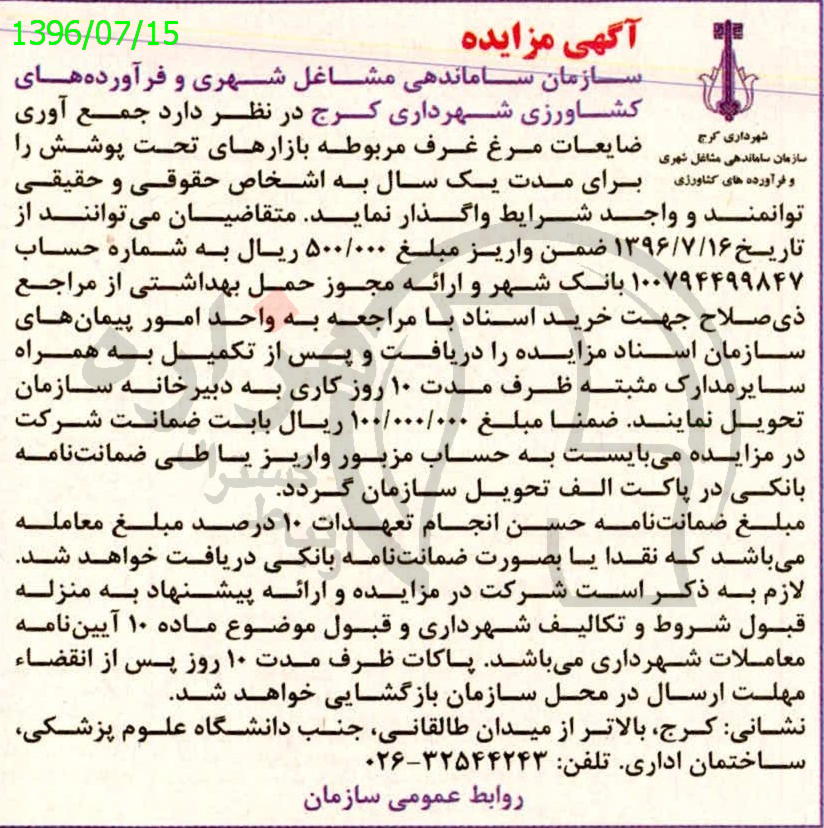 1396/07/15
آگهی مزایده
شهرداری کرج
سازمان ساماندهی مشاغل شهری
و فرآورده های کشاورزی
سازمان ساماندهی مشاغل شهری و فرآورده‌های
کشاورزی شهرداری کرج در نظر دارد جمع آوری
ضایعات مرغ غرف مربوطه بازارهای تحت پوشش را
برای مدت یک سال به اشخاص حقوقی و حقیقی
توانمند و واجد شرایط واگذار نماید. متقاضیان می‌توانند از
تاریخ ۱۳۹۶/۷/۱۶ ضمن واریز مبلغ ۵۰۰/۰۰۰ ریال به شماره حساب
۱۰۰۷۹۴۴۹۹۸۴۷ بانک شهر و ارائه مجوز حمل بهداشتی از مراجع
ذی‌صلاح جهت خرید اسناد با مراجعه به واحد امور پیمان‌های
سازمان اسناد مزایده را دریافت و پس از تکمیل به همراه
سایرمدارک مثبته ظرف مدت ۱۰ روز کاری به دبیرخانه سازمان
تحویل نمایند. ضمنا مبلغ ۱۰۰/۰۰۰/۰۰۰ ریال بابت ضمانت شرکت
در مزایده می‌بایست به حساب مزبور واریز یا طی ضمانت‌نامه
بانکی در پاکت الف تحویل سازمان گردد.
مبلغ ضمانت‌نامه حسن انجام تعهدات ۱۰ درصد مبلغ معامله
می‌باشد که نقدا یا بصورت ضمانت‌نامه بانکی دریافت خواهد شد.
لازم به ذکر است شرکت در مزایده و ارائه پیشنهاد به منزله
قبول شروط و تکالیف شهرداری و قبول موضوع ماده ۱۰ آیین‌نامه
معاملات شهرداری می‌باشد. پاکات ظرف مدت ۱۰ روز پس از انقضاء
مهلت ارسال در محل سازمان بازگشایی خواهد شد.
نشانی: کرج، بالاتر از میدان طالقانی، جنب دانشگاه علوم پزشکی،
ساختمان اداری. تلفن: ۳۲۵۴۴۲۴۳-۰۲۶
روابط عمومی سازمان